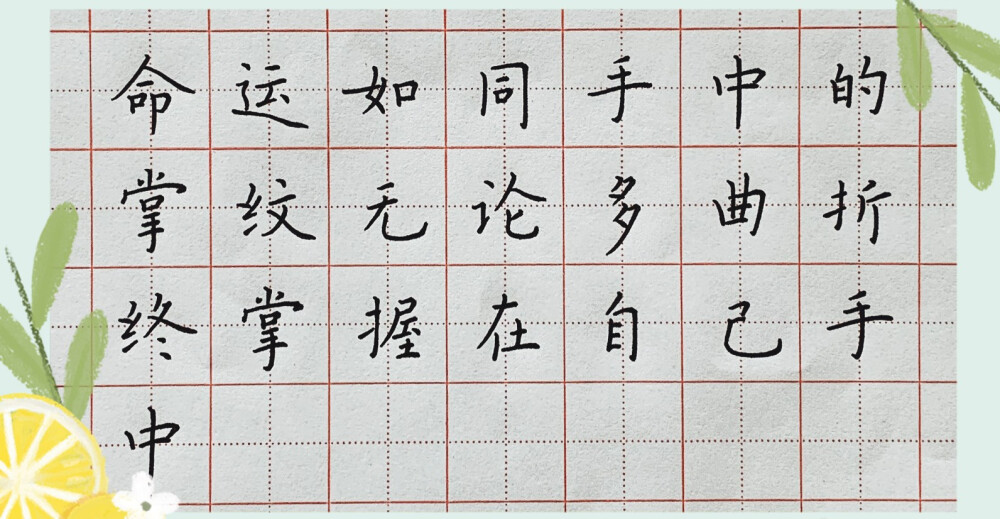 命运如同手中的
掌纹无论多曲折
终掌握在自己手
中